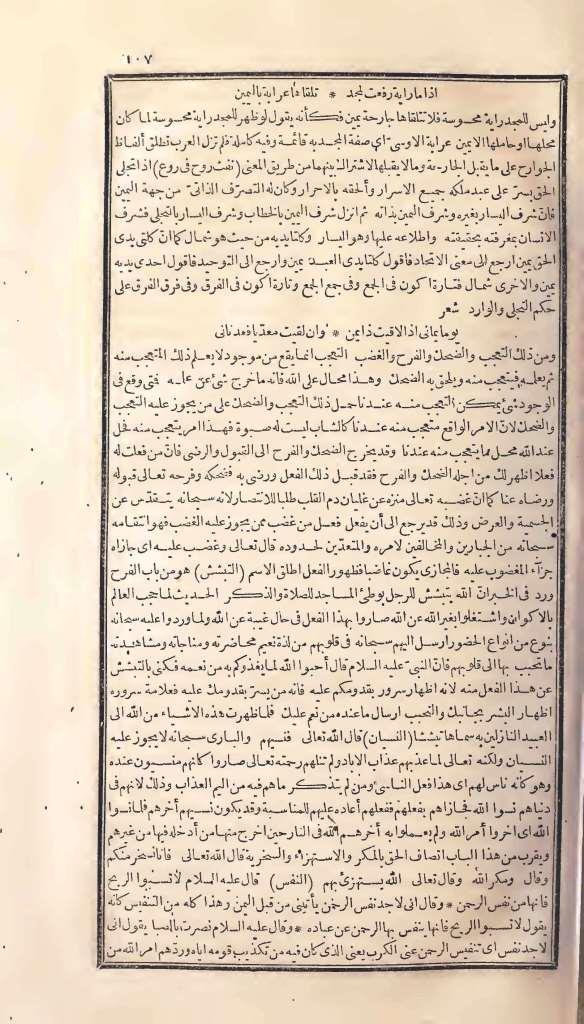 ١٠٧
اذا ما راية رفعت لمجد * تلقاها عرابة باليمين
وليس للمجد راية محسوسة فلا تتلقاها جارحة يمين فكأنه يقول لو ظهر للمجد راية محسوسة لما كان
محلها أو حاملها الا يمين عرابة الاوسى أى صفة المجد به قائمة وفيه كاملة فلم تزل العرب تطلق ألفاظ
الجوارح على ما يقبل الجارحة وما لا يقبلها لاشتراك بينهما من طريق المعنى (نفث روح فى روع) اذا تجلى
الحق بسر على عبد ملكه جميع الاسرار وألحقه بالاحرار وكان له التصرف الذاتى من جهة اليمين
فان شرف اليسار بغيره وشرف اليمين بذاته ثم انزل شرف اليمين بالخطاب وشرف اليسار بالتجلى فشرف
الانسان بمعرفته بحقيقته واطلاعه عليها وهو اليسار وكلتا يديه من حيث هو شمال كما ان كلتى يدى
الحق يمين ارجع الى معنى الاتحاد فأقول كلتا يدى العبد يمين وارجع الى التوحيد فاقول احدى يديه
يمين والاخرى شمال فتارة اكون فى الجمع وفى جمع الجمع وتارة اكون فى الفرق وفى فرق الفرق على
حكم التجلى والوارد شعر
يوما يمانى اذا لاقيت ذا يمن * وان لقيت معديا فعدنانى
ومن ذلك التعجب والضحك والفرح والغضب التعجب انما يقع من موجود لا يعلم ذلك المتعجب منه
ثم يعلمه فيتعجب منه ويلحق به الضحك وهذا محال على الله فانه ما خرج شئ عن علمه فتى وقع فى
الوجود شئ يمكن التعجب منه عندنا حمل ذلك التعجب والضحك على من يجوز عليه التعجب
والضحك لان الامر الواقع متعجب منه عندنا كالشاب ليست له صبوة فهذا امر يتعجب منه فحل
عند الله محل ما يتعجب منه عندنا وقد يخرج الضحك والفرح الى القبول والرضى فان من فعلت له
فعلا اظهر لك من اجله الضحك والفرح فقد قبل ذلك الفعل ورضى به فضحكه وفرحه تعالى قبوله
ورضاه عنا كما ان غضبه تعالى منزه عن غليان دم القلب طلبا للانتصار لانه سبحانه يتقدس عن
الجسمية والعرض وذلك قد يرجع الى أن يفعل فعل من غضب ممن يجوز عليه الغضب فهو انتقامه
سبحانه من الجبارين والمخالفين لامره والمتعدين لحدوده قال تعالى وغضب عليه اى جازاه
جزآء المغضوب عليه فالمجازى يكون غاضبا فظهور الفعل اطلق الاسم (التبشش) هو من باب الفرح
ورد فى الخبر ان الله يتبشش للرجل يوطئ المساجد للصلاة والذكر الحديث لما حجب العالم
بالاكوان واشتغلوا بغير الله عن الله صاروا بهذا الفعل فى حال غيبة عن الله ولما وردوا عليه سبحانه
بنوع من انواع الحضور ارسل اليهم سبحانه فى قلوبهم من لذة نعيم محاضرته ومناجاته ومشاهدته
ما تحبب بها الى قلوبهم فان النبى عليه السلام قال أحبوا الله لما يغذوكم به من نعمه فكنى بالتبشش
عن هذا الفعل منه لانه اظهار سرور بقدومكم عليه فانه من يسر بقدومك عليه فعلامة سروره
اظهار البشر بجانبك والتحبب ارسال ما عنده من نعم عليك فلما ظهرت هذه الاشياء من الله الى
العبيد النازلين به سماها تبششا (النسيان) قال الله تعالى فنسيهم والبارى سبحانه لا يجوز عليه
النسيان ولكنه تعالى لما عذبهم عذاب الابد ولم تنلهم رحمته تعالى صاروا كانهم منسيون عنده
وهو كأنه ناس لهم اى هذا فعل الناسى ومن لم يتذكر ما هم فيه من اليم العذاب وذلك لانهم فى
دنياهم نسوا الله فجازاهم بفعلهم ففعلهم أعاده عليهم للمناسبة وقد يكون نسيهم أخرهم فلما نسوا
الله اى اخروا أمر الله ولم يعملوا به أخرهم الله فى النار حين اخرج منها من أدخله فيها من غيرهم
ويقرب من هذا الباب اتصاف الحق بالمكر والاستهزاء والسخرية قال الله تعالى فانا نسخر منكم
وقال ومكر الله وقال تعالى الله يستهزئ بهم (النفس) قال عليه السلام لا تسبوا الريح
فانها من نفس الرحمن * وقال انى لاجد نفس الرحمن يأتينى من قبل اليمن وهذا كله من التنفيس كانه
يقول لا تسبوا الريح فانها ينفس بها الرحمن عن عباده * وقال عليه السلام نصرت بالصبا يقول انى
لاجد نفس اى تنفيس الرحمن عنى الكرب يعنى الذى كان فيه من تكذيب قومه اياه وردهم امر الله من